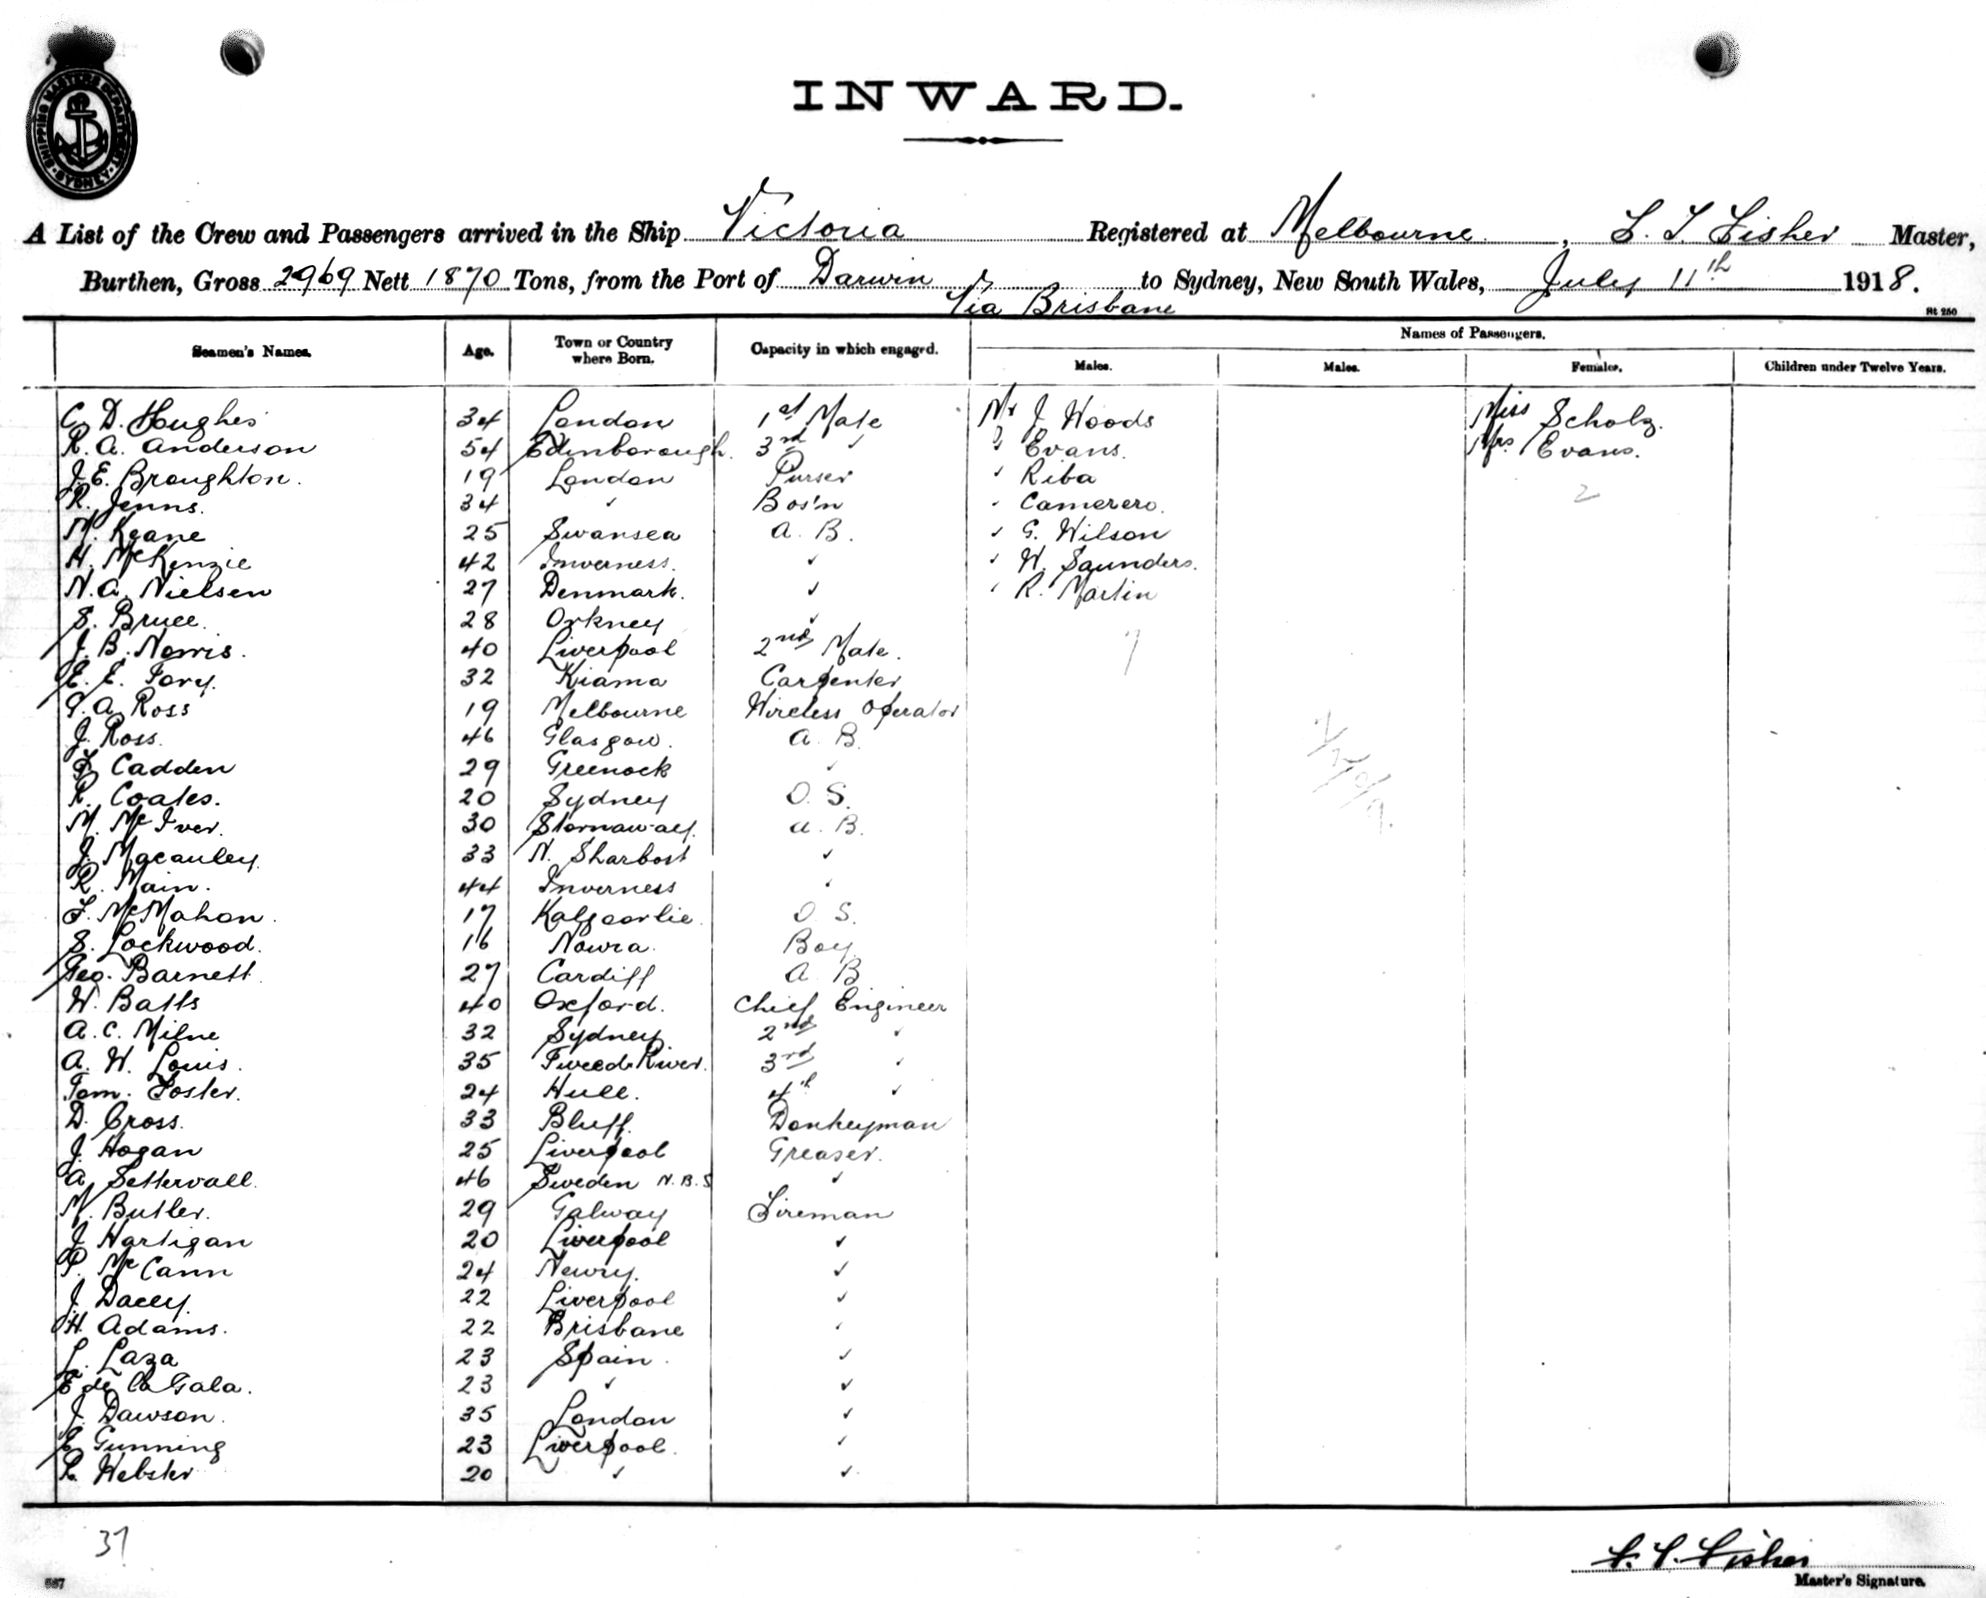 SHIPPING MASTERS DEPARTMENT SYDNEY
INWARD.
A List of the Crew and Passengers arrived in the Ship Victoria Registered at Melbourne, L. T. Fisher Master,
Burthen, Gross 2969 Nett 1870 Tons, from the Port of Darwin to Sydney, New South Wales, July 11th 1918.
Via Brisbane
Rt 250
Names of Passengers.
Seamen's Names. Age. Town or Country where Born. Capacity in which engaged. Males. Males. Females. Children under Twelve Years.
C. D. Hughes 34 London 1st Mate Mr J. Woods Miss Scholz.
R. A. Anderson 54 Edinborough. 3rd " " Evans. Mrs Evans.
J. E. Broughton. 19 London Purser " Riba
R. Jenns. 34 " Bos'n " Camerero. 2
M. Keane 25 Swansea A. B. " G. Wilson
H. McKenzie 42 Inverness. " " W. Saunders.
N. A. Nielsen 27 Denmark. " " R. Martin
S. Bruce. 28 Orkney "
J. B. Norris. 40 Liverpool 2nd Mate. 7
E. E. Tory. 32 Kiama Carpenter
A. Ross 19 Melbourne Wireless Operator
J. Ross. 46 Glasgow. A. B.
Cadden 29 Greenock "
R. Coates. 20 Sydney O. S.
M. McIver. 30 Stornaway. A. B.
J. Macauley. 33 N. Sharbost "
R. Main. 44 Inverness "
F. McMahon. 17 Kalgoorlie. O. S.
S. Lockwood. 16 Nowra. Boy
Geo. Barnett. 27 Cardiff A. B
W. Batts 40 Oxford. Chief Engineer
A. C. Milne 32 Sydney. 2nd "
A. W. Louis. 35 Tweed River. 3rd "
Tom. Foster. 24 Hull. 4th "
D. Cross. 33 Bluff. Donkeyman
J. Hogan 25 Liverpool Greaser.
A. Settervall. 46 Sweden N.B.S "
M. Butler. 29 Galway Fireman
J. Hartigan 20 Liverpool "
P. McCann 24 Newry. "
J. Dacey. 22 Liverpool "
H. Adams. 22 Brisbane "
L. Laza 23 Spain. "
E de la Gala. 23 " "
J. Dawson. 35 London "
E. Gunning 23 Liverpool. "
R. Webster 20 " "
37
L. T. Fisher
Master's Signature.
587